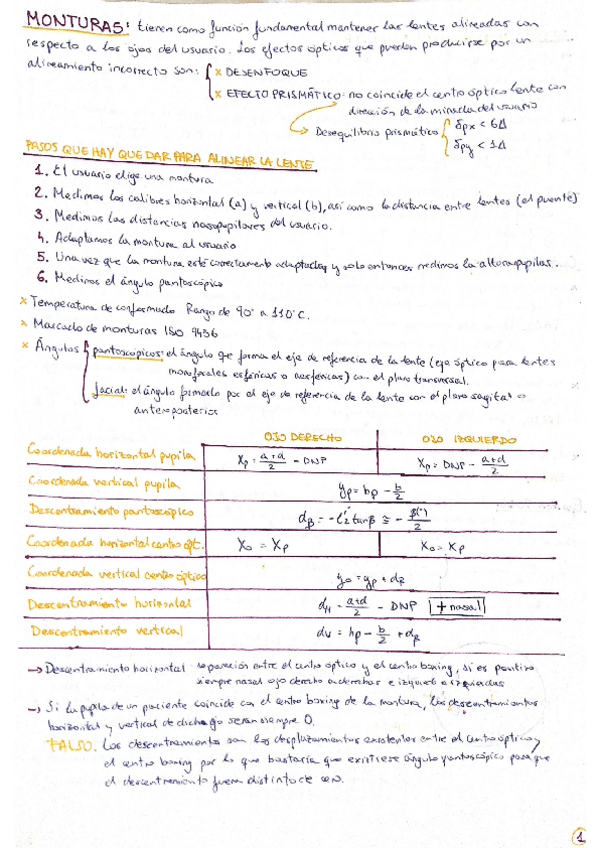 MONTURAS: tienen como función fundamental mantener las lentes alineadas con
respecto a los ojos del usuario. Los efectos ópticos que pueden producirse por un
alineamiento incorrecto son: { x DESENFOQUE
x EFECTO PRISMÁTICO: no coincide el centro óptico lente con
dirección de la mirada del usuario
→ Desequilibrio prismático { δpx < 6Δ
δpy < 1Δ
PASOS QUE HAY QUE DAR PARA ALINEAR LA LENTE
1. El usuario elige una montura
2. Medimos los calibres horizontal (a) y vertical (b), así como la distancia entre lentes (el puente)
3. Medimos las distancias nasopupilares del usuario.
4. Adaptamos la montura al usuario
5. Una vez que la montura esté correctamente adaptada y solo entonces medimos la altura pupilar...
6. Medimos el ángulo pantoscópico
x Temperatura de conformado Rango de 90° a 110°C.
x Marcado de monturas ISO 9456
x Ángulos { pantoscópicos: el ángulo que forma el eje de referencia de la lente (eje óptico para lentes
monofocales esféricas o asféricas) con el plano transversal.
facial: el ángulo formado por el eje de referencia de la lente con el plano sagital o
anteroposterior
OJO DERECHO OJO IZQUIERDO
Coordenada horizontal pupila Xp = a+d/2 - DNP Xp = DNP - a+d/2
Coordenada vertical pupila yp = hp - b/2
Descentramiento pantoscópico dβ = -l'2 tanβ ≅ - β(°)/2
Coordenada horizontal centro ópt. Xo = Xp Xo = Xp
Coordenada vertical centro óptico yo = yp + dβ
Descentramiento horizontal dH = a+d/2 - DNP + nasal
Descentramiento vertical dv = hp - b/2 + dβ
→ Descentramiento horizontal separación entre el centro óptico y el centro boxing, si es positivo
siempre nasal ojo derecho a derechas e izquierdo a izquierdas
→ Si la pupila de un paciente coincide con el centro boxing de la montura, los descentramientos
horizontal y vertical de dicho ojo serán siempre 0.
FALSO. Los descentramientos son los desplazamientos existentes entre el centro óptico y
el centro boxing por lo que bastaría que existiese ángulo pantoscópico para que
el descentramiento fuera distinto de
1